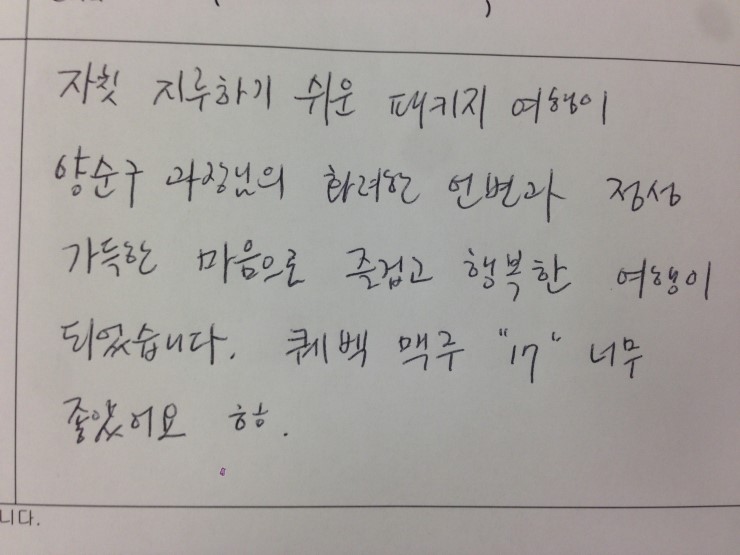 자칫 지루하기 쉬운 패키지 여행이
양순구 과장님의 화려한 언변과 정성
가득한 마음으로 즐겁고 행복한 여행이
되었습니다. 퀘벡 맥주 "17" 너무
좋았어요 ㅎㅎ.
니다.